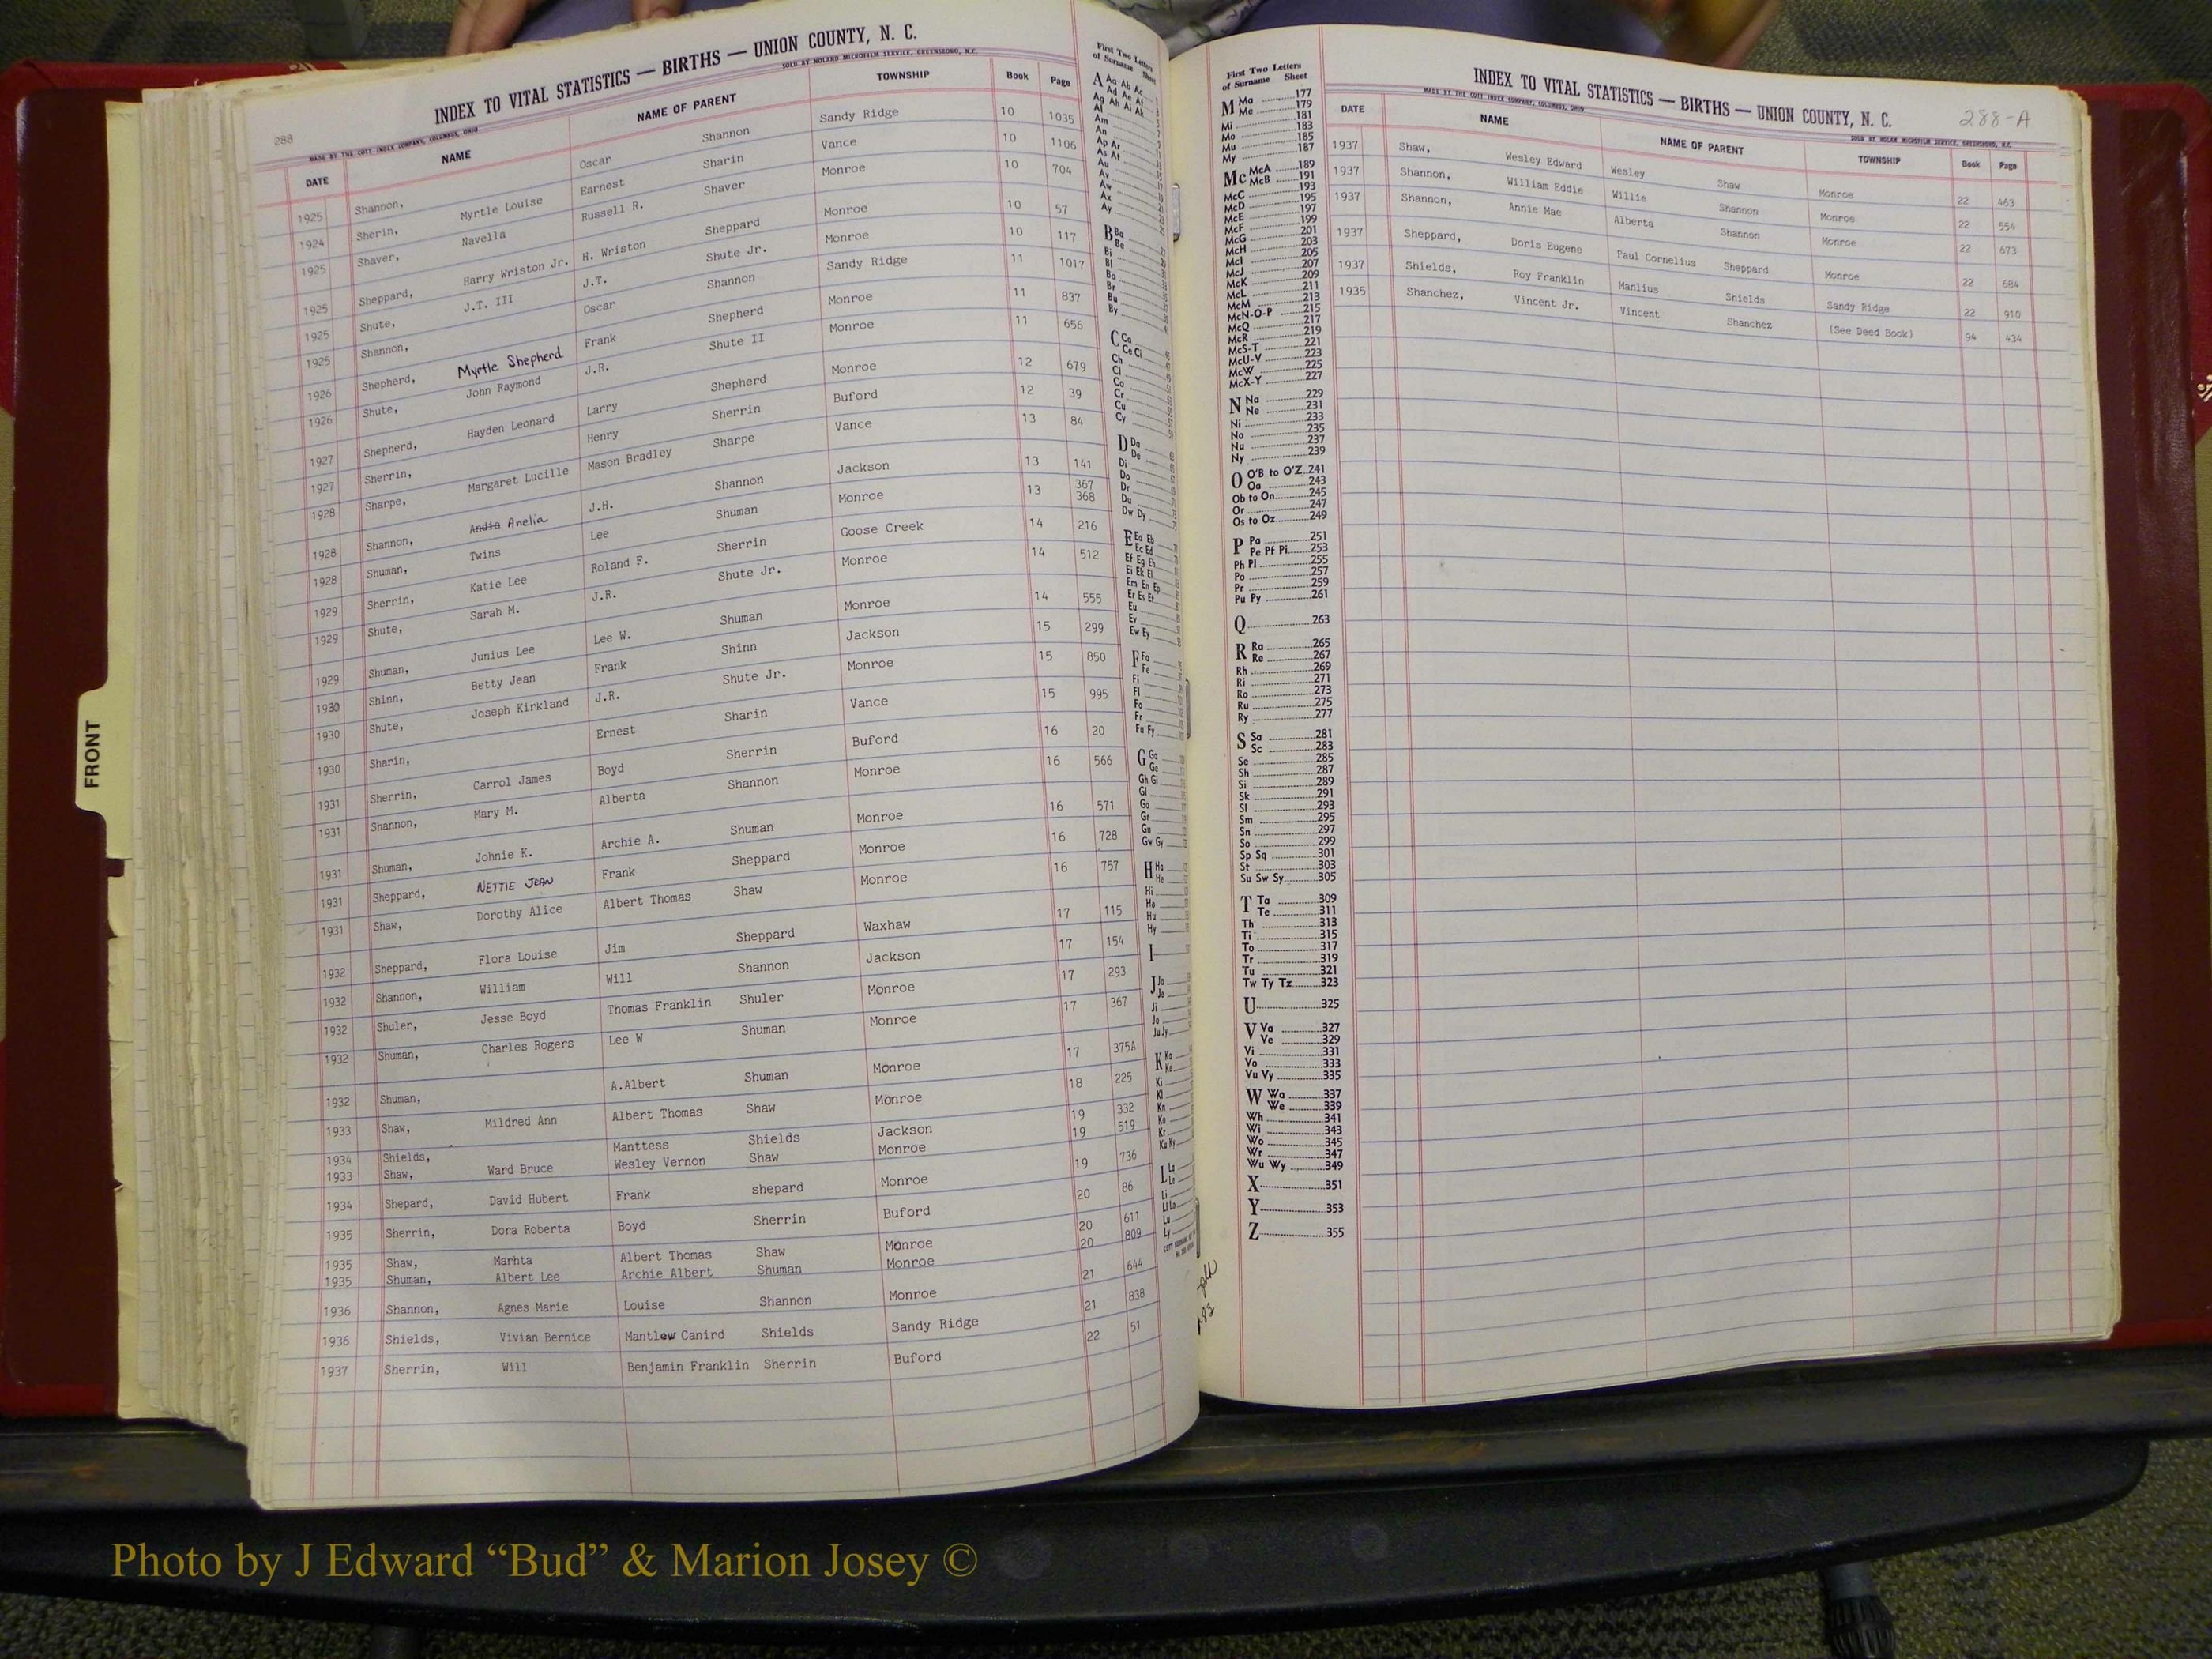 288
INDEX TO VITAL STATISTICS — BIRTHS — UNION COUNTY, N. C.
MADE BY THE COTT INDEX COMPANY, COLUMBUS, OHIO SOLD BY NOLAND MICROFILM SERVICE, GREENSBORO, N.C.
DATE NAME NAME OF PARENT TOWNSHIP Book Page
1925 Shannon, Myrtle Louise Oscar Shannon Sandy Ridge 10 1035
1924 Sherin, Navella Earnest Sharin Vance 10 1106
1925 Shaver, Russell R. Shaver Monroe 10 704
1925 Sheppard, Harry Wriston Jr. H. Wriston Sheppard Monroe 10 57
1925 Shute, J.T. III J.T. Shute Jr. Monroe 10 117
1925 Shannon, Oscar Shannon Sandy Ridge 11 1017
1926 Shepherd, Myrtle Shepherd Frank Shepherd Monroe 11 837
1926 Shute, John Raymond J.R. Shute II Monroe 11 656
1927 Shepherd, Hayden Leonard Larry Shepherd Monroe 12 679
1927 Sherrin, Henry Sherrin Buford 12 39
1928 Sharpe, Margaret Lucille Mason Bradley Sharpe Vance 13 84
1928 Shannon, Andia Anelia J.H. Shannon Jackson 13 141
1928 Shuman, Twins Lee Shuman Monroe 13 367 368
1929 Sherrin, Katie Lee Roland F. Sherrin Goose Creek 14 216
1929 Shute, Sarah M. J.R. Shute Jr. Monroe 14 512
1929 Shuman, Junius Lee Lee W. Shuman Monroe 14 555
1930 Shinn, Betty Jean Frank Shinn Jackson 15 299
1930 Shute, Joseph Kirkland J.R. Shute Jr. Monroe 15 850
1930 Sharin, Ernest Sharin Vance 15 995
1931 Sherrin, Carrol James Boyd Sherrin Buford 16 20
1931 Shannon, Mary M. Alberta Shannon Monroe 16 566
1931 Shuman, Johnie K. Archie A. Shuman Monroe 16 571
1931 Sheppard, NETTIE JEAN Frank Sheppard Monroe 16 728
1931 Shaw, Dorothy Alice Albert Thomas Shaw Monroe 16 757
1932 Sheppard, Flora Louise Jim Sheppard Waxhaw 17 115
1932 Shannon, William Will Shannon Jackson 17 154
1932 Shuler, Jesse Boyd Thomas Franklin Shuler Monroe 17 293
1932 Shuman, Charles Rogers Lee W Shuman Monroe 17 367
1932 Shuman, A.Albert Shuman Monroe 17 375A
1933 Shaw, Mildred Ann Albert Thomas Shaw Monroe 18 225
1934 Shields, Manttess Shields Jackson 19 332
1933 Shaw, Ward Bruce Wesley Vernon Shaw Monroe 19 519
1934 Shepard, David Hubert Frank shepard Monroe 19 736
1935 Sherrin, Dora Roberta Boyd Sherrin Buford 20 86
1935 Shaw, Marhta Albert Thomas Shaw Monroe 20 611
1935 Shuman, Albert Lee Archie Albert Shuman Monroe 20 809
1936 Shannon, Agnes Marie Louise Shannon Monroe 21 644
1936 Shields, Vivian Bernice Mantlew Canird Shields Sandy Ridge 21 838
1937 Sherrin, Will Benjamin Franklin Sherrin Buford 22 51
First Two Letters
of Surname Sheet
A Aa Ab Ac
Ad Ae Af
Ag Ah Ai Ak
Al
Am
An
Ap Ar
As At
Au
Av
Aw
Ax
Ay
B Ba
Be
Bi
Bl
Bo
Br
Bu
By
C Ca
Ce Ci
Ch
Cl
Co
Cr
Cu
Cy
D Da
De
Di
Do
Dr
Du
Dw Dy
E Ea Eb
Ec Ed
Ef Eg Eh
Ei Ek El
Em En Ep
Er Es Et
Eu
Ev
Ew Ey
F Fa
Fe
Fi
Fl
Fo
Fr
Fu Fy
G Ga
Ge
Gh Gi
Gl
Go
Gr
Gu
Gw Gy
H Ha
He
Hi
Ho
Hu
Hy
I
J Ja
Je
Ji
Jo
Ju Jy
K Ka
Ke
Ki
Kl
Kn
Ko
Kr
Ku Ky
L La
Le
Li
Ll Lo
Lu
Ly
FRONT
First Two Letters
of Surname Sheet
M Ma 177
Me 179
Mi 181
Mo 183
Mu 185
My 187
Mc McA 189
McB 191
McC 193
McD 195
McE 197
McF 199
McG 201
McH 203
McI 205
McJ 207
McK 209
McL 211
McM 213
McN-O-P 215
McQ 217
McR 219
McS-T 221
McU-V 223
McW 225
McX-Y 227
N Na 229
Ne 231
Ni 233
No 235
Nu 237
Ny 239
O O'B to O'Z 241
Oa 243
Ob to On 245
Or 247
Os to Oz 249
P Pa 251
Pe Pf Pi 253
Ph Pl 255
Po 257
Pr 259
Pu Py 261
Q 263
R Ra 265
Re 267
Rh 269
Ri 271
Ro 273
Ru 275
Ry 277
S Sa 281
Sc 283
Se 285
Sh 287
Si 289
Sk 291
Sl 293
Sm 295
Sn 297
So 299
Sp Sq 301
St 303
Su Sw Sy 305
T Ta 309
Te 311
Th 313
Ti 315
To 317
Tr 319
Tu 321
Tw Ty Tz 323
U 325
V Va 327
Ve 329
Vi 331
Vo 333
Vu Vy 335
W Wa 337
We 339
Wh 341
Wi 343
Wo 345
Wr 347
Wu Wy 349
X 351
Y 353
Z 355
INDEX TO VITAL STATISTICS — BIRTHS — UNION COUNTY, N. C. 288-A
MADE BY THE COTT INDEX COMPANY, COLUMBUS, OHIO SOLD BY NOLAN MICROFILM SERVICE, GREENSBORO, N.C.
DATE NAME NAME OF PARENT TOWNSHIP Book Page
1937 Shaw, Wesley Edward Wesley Shaw Monroe 22 463
1937 Shannon, William Eddie Willie Shannon Monroe 22 554
1937 Shannon, Annie Mae Alberta Shannon Monroe 22 673
1937 Sheppard, Doris Eugene Paul Cornelius Sheppard Monroe 22 684
1937 Shields, Roy Franklin Manlius Shields Sandy Ridge 22 910
1935 Shanchez, Vincent Jr. Vincent Shanchez (See Deed Book) 94 434
Photo by J Edward “Bud” & Marion Josey ©